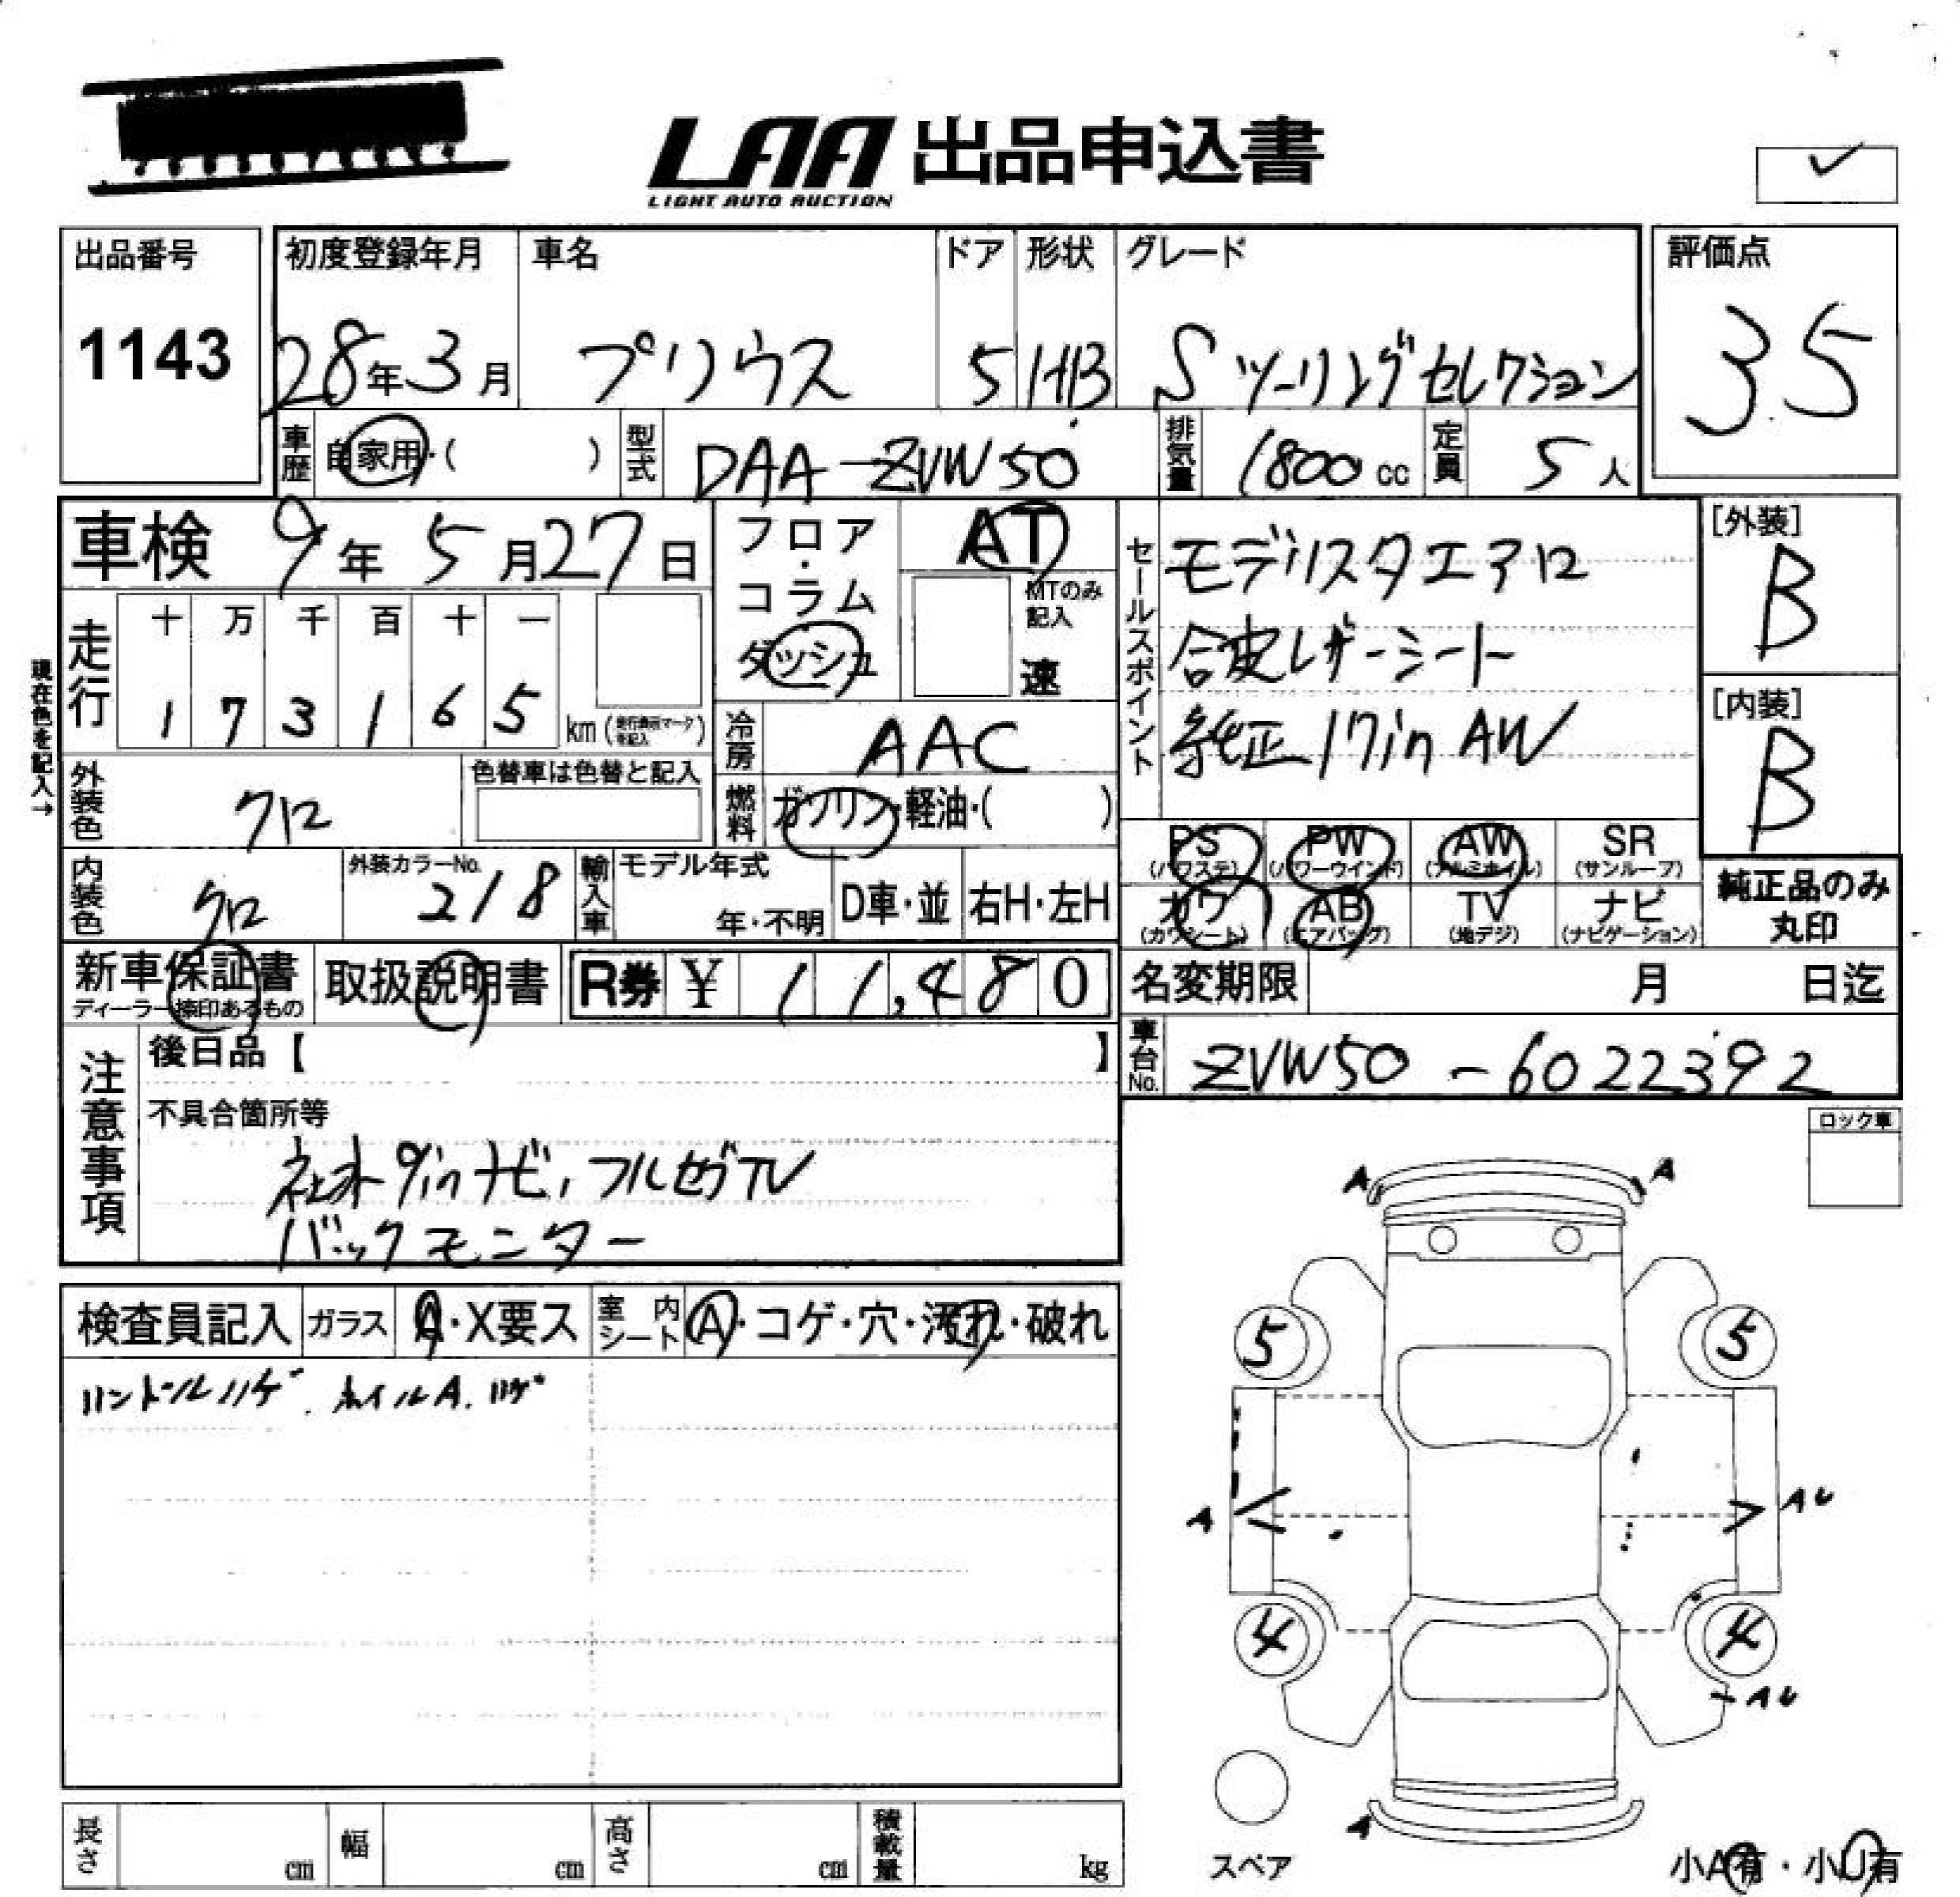 LAA 出品申込書
LIGHT AUTO AUCTION
出品番号 初度登録年月 車名 ドア 形状 グレード 評価点
1143 28年3月 プリウス 5 HB Sツーリングセレクション 35
車歴 自家用・( ) 型式 DAA-ZVW50 排気量 1800cc 定員 5人
車検 9年5月27日 フロア・コラム AT セールスポイント モデリスタエアロ [外装]
ダッシュ MTのみ記入 速 合皮レザーシート B
現在色を記入→
走行 十 万 千 百 十 一 純正17inAW [内装]
1 7 3 1 6 5 km 冷房 AAC B
外装色 クロ 色替車は色替と記入 燃料 ガソリン・軽油・( )
PS PW AW SR
(パワステ) (パワーウインド) (アルミホイル) (サンルーフ)
内装色 クロ 外装カラーNo. 218 輸入車 モデル年式 年・不明 D車・並 右H・左H
カワ AB TV ナビ 純正品のみ
(カワシート) (エアバッグ) (地デジ) (ナビゲーション) 丸印
新車保証書 取扱説明書 R券 ¥ 11,480 名変期限 月 日迄
ディーラー捺印あるもの
注意事項 後日品【 】 車台No. ZVW50-6022392
不具合箇所等
社外9inナビ,フルセグTV
バックモニター
ロック車
検査員記入 ガラス A・X要ス 室内シート A・コゲ・穴・汚れ・破れ
ハンドルハゲ. ホイルA.ハゲ
A A
5 5
A AU
4 4
AU
A
スペア
小A有・小U有
長さ cm 幅 cm 高さ cm 積載量 kg